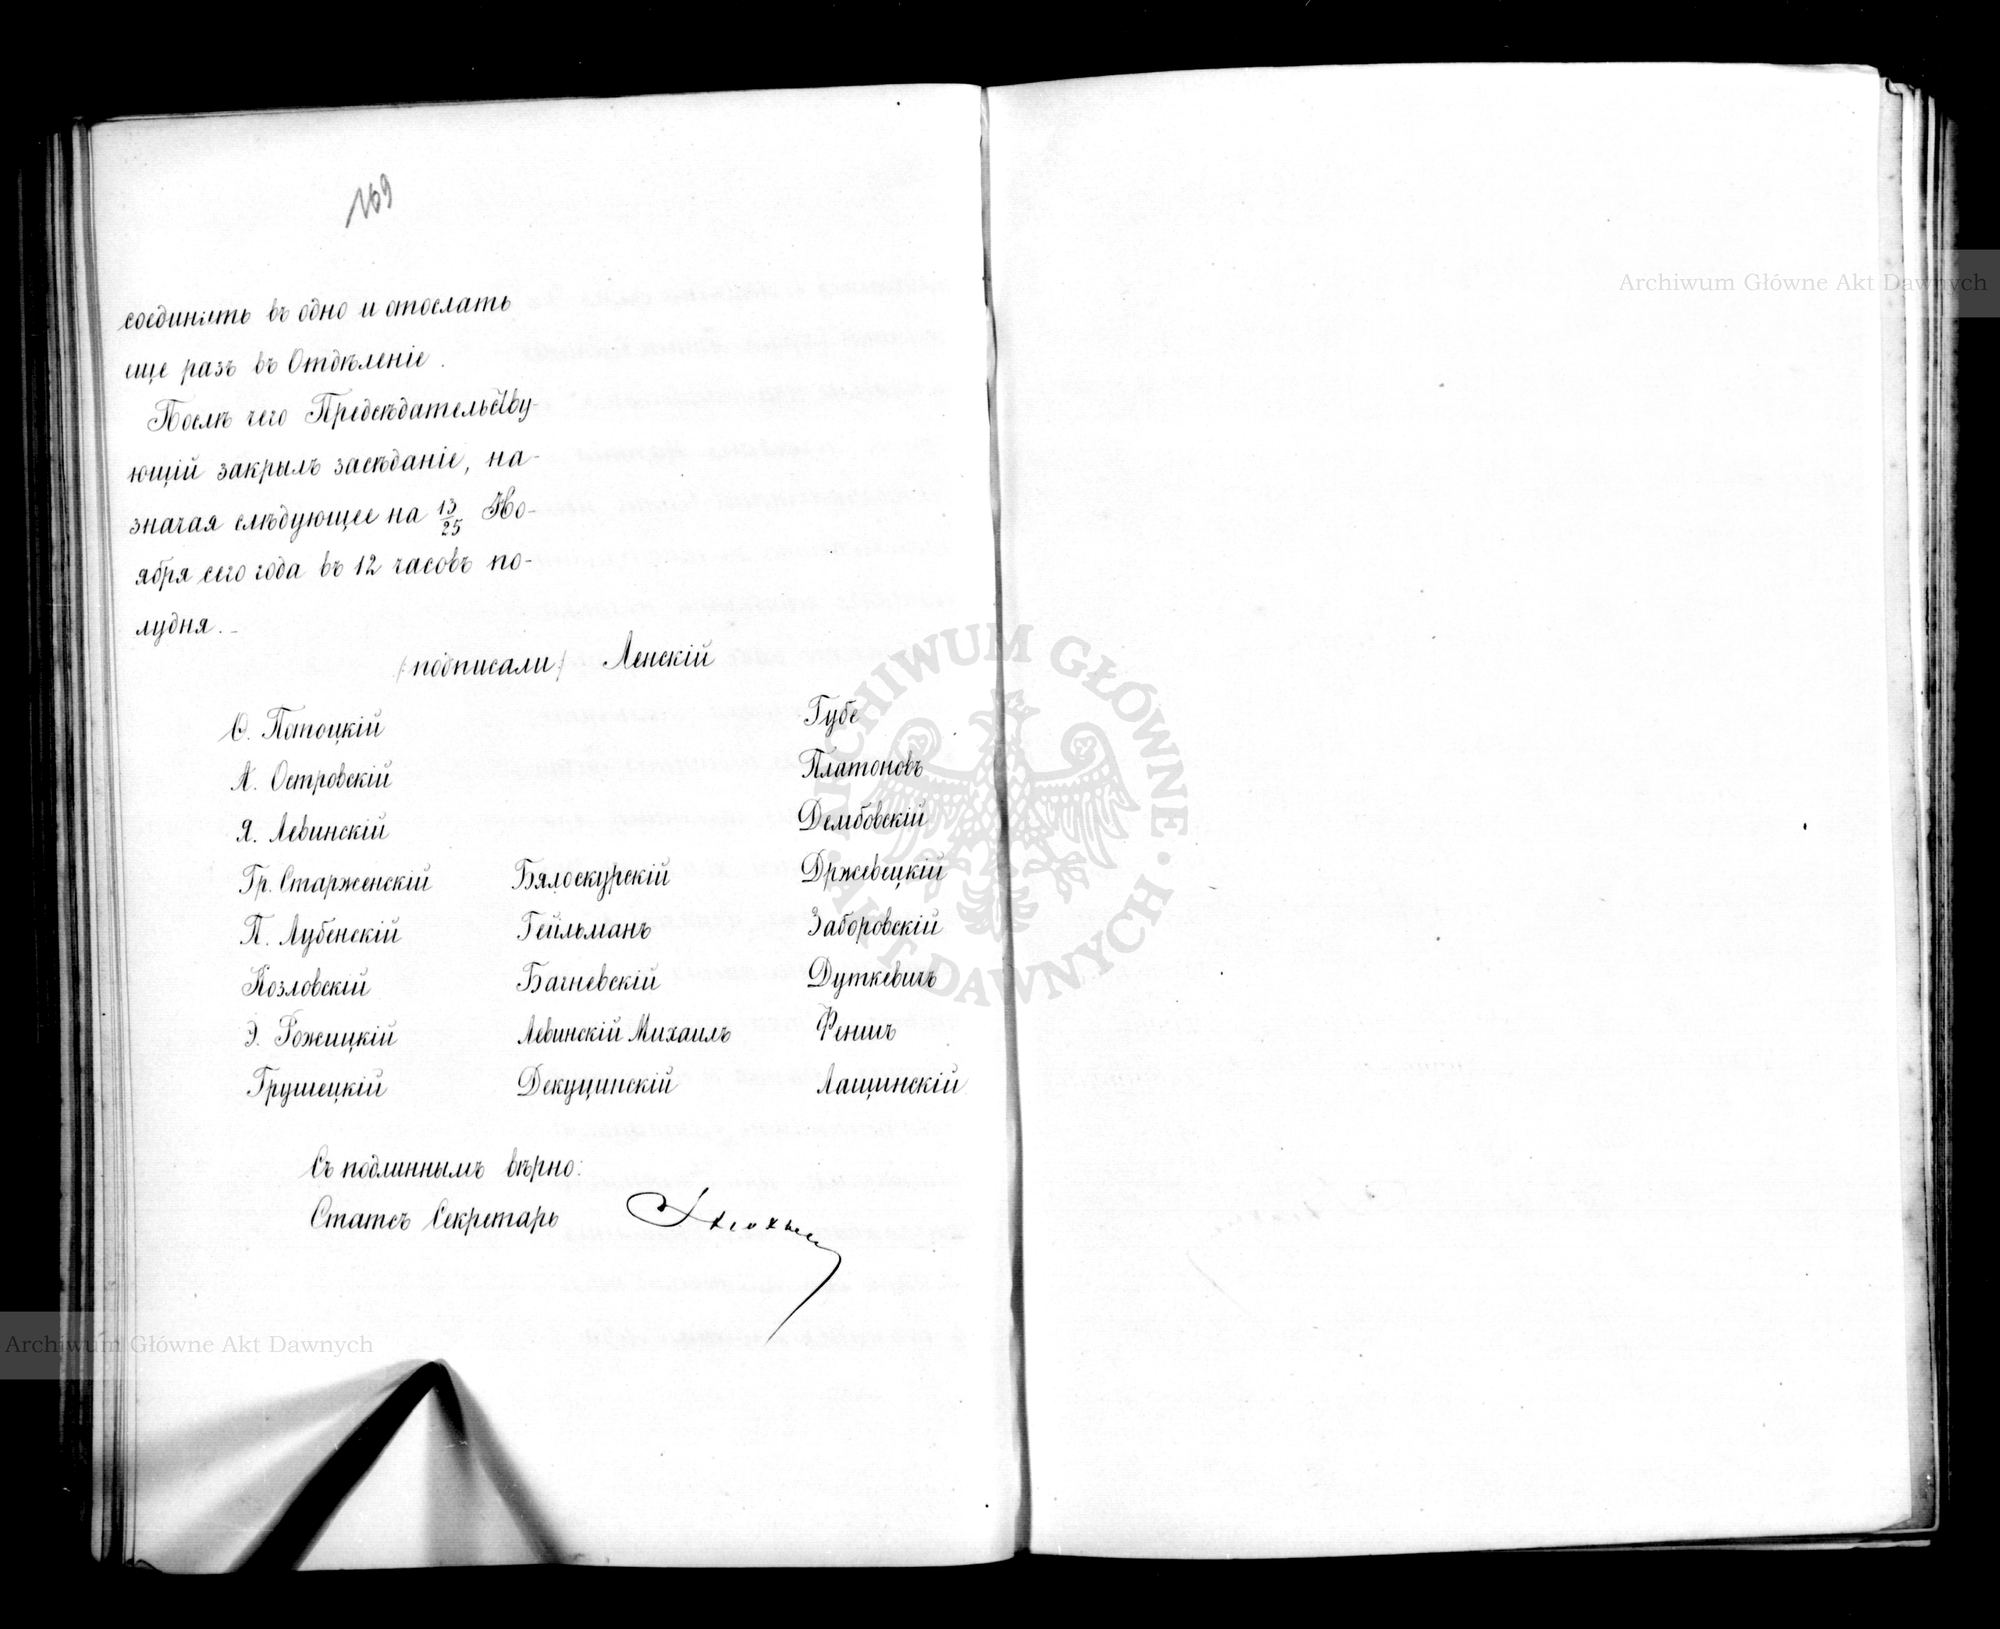 169
соединить въ одно и отослать
еще разъ въ Отдѣленіе.
Послѣ чего Предсѣдательству-
ющій закрылъ засѣданіе, на-
значая слѣдующее на 13/25 Но-
ября сего года въ 12 часовъ по-
лудня.
/подписали/ Ленскій
Ѳ. Потоцкій Губе
А. Островскій Платоновъ
Я. Левинскій Дембовскій
Гр. Старженскій Бялоскурскій Држевецкій
П. Лубенскій Гейльманъ Заборовскій
Козловскій Багневскій Дуткевичъ
Э. Рожицкій Левинскій Михаилъ Феншъ
Грушецкій Декуцинскій Лащинскій
Съ подлиннымъ вѣрно:
Статсъ Секретарь
Archiwum Główne Akt Dawnych
ARCHIWUM GŁÓWNE AKT DAWNYCH
Archiwum Główne Akt Dawnych